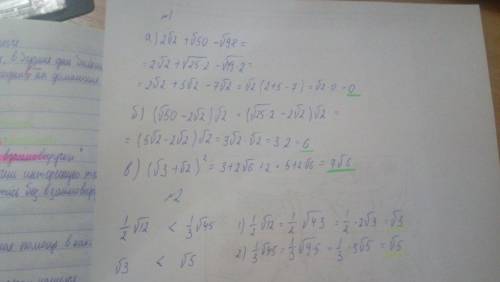 №1
а) 2√2 + √50 - √98 =
= 2√2 + √25·2 - √49·2 =
= 2√2 + 5√2 - 7√2 = √2 (2+5-7) = √2·0 = 0
б) (√50 - 2√2)√2 = (√25·2 - 2√2)√2 =
= (5√2 - 2√2)√2 = 3√2·√2 = 3·2 = 6
в) (√3 + √2)² = 3 + 2√6 + 2 = 5 + 2√6 = 7√6
№2
1/2 √12 < 1/3 √45
√3 < √5
1) 1/2 √12 = 1/2 √4·3 = 1/2 · 2√3 = √3
2) 1/3 √45 = 1/3 √9·5 = 1/3 · 3√5 = √5